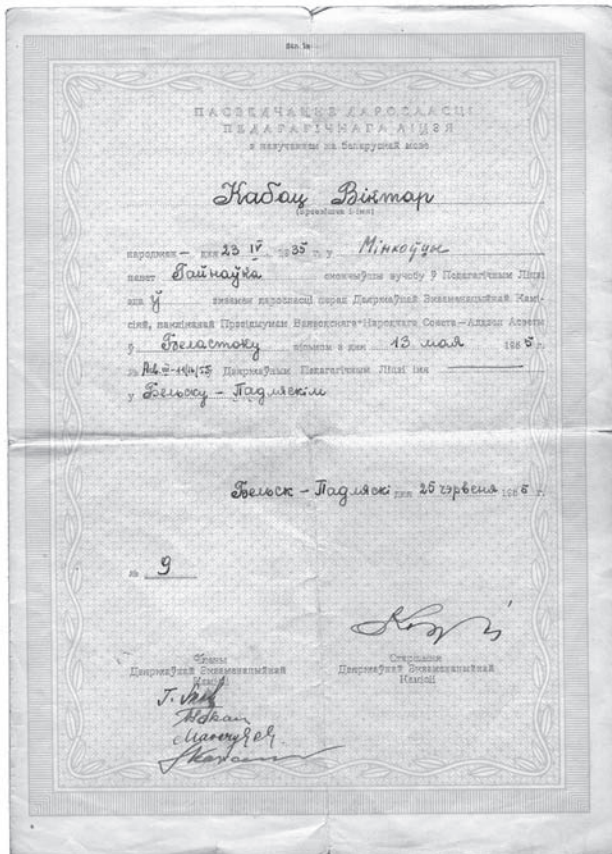 ПАСВЕДЧАННЕ ДАРОСЛАСЦІ
ПЕДАГАГІЧНАГА ЛІЦЭЯ
з навучаннем на беларускай мове
Кабац Віктар
(прозвішча і імя)
народжан— дня 23 IV 1935 г. у Мінкоўцы
павет Гайнаўка скончыўшы вучобу ў Педагагічным Ліцэі
ў экзамен даросласці перад Дзяржаўнай Экзаменацыйнай Камі-
сіяй, Прэзідыумам Ваяводскага Народнага Совета — Аддзел Асветы
ў Беластоку пісьмом з дня 13 мая 1955 г.
№ Дзяржаўным Педагагічным Ліцэі імя
у Бельску - Падляскім
Бельск - Падляскі дня 25 чэрвеня 1955 г.
№ 9
Члены
Дзяржаўнай Экзаменацыйнай
Камісіі
Старшыня
Дзяржаўнай Экзаменацыйнай
Камісіі